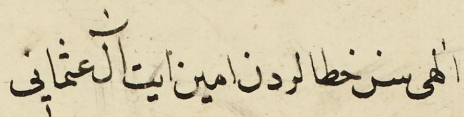 الهی سن خطالردن امین ایت آل عثمانی